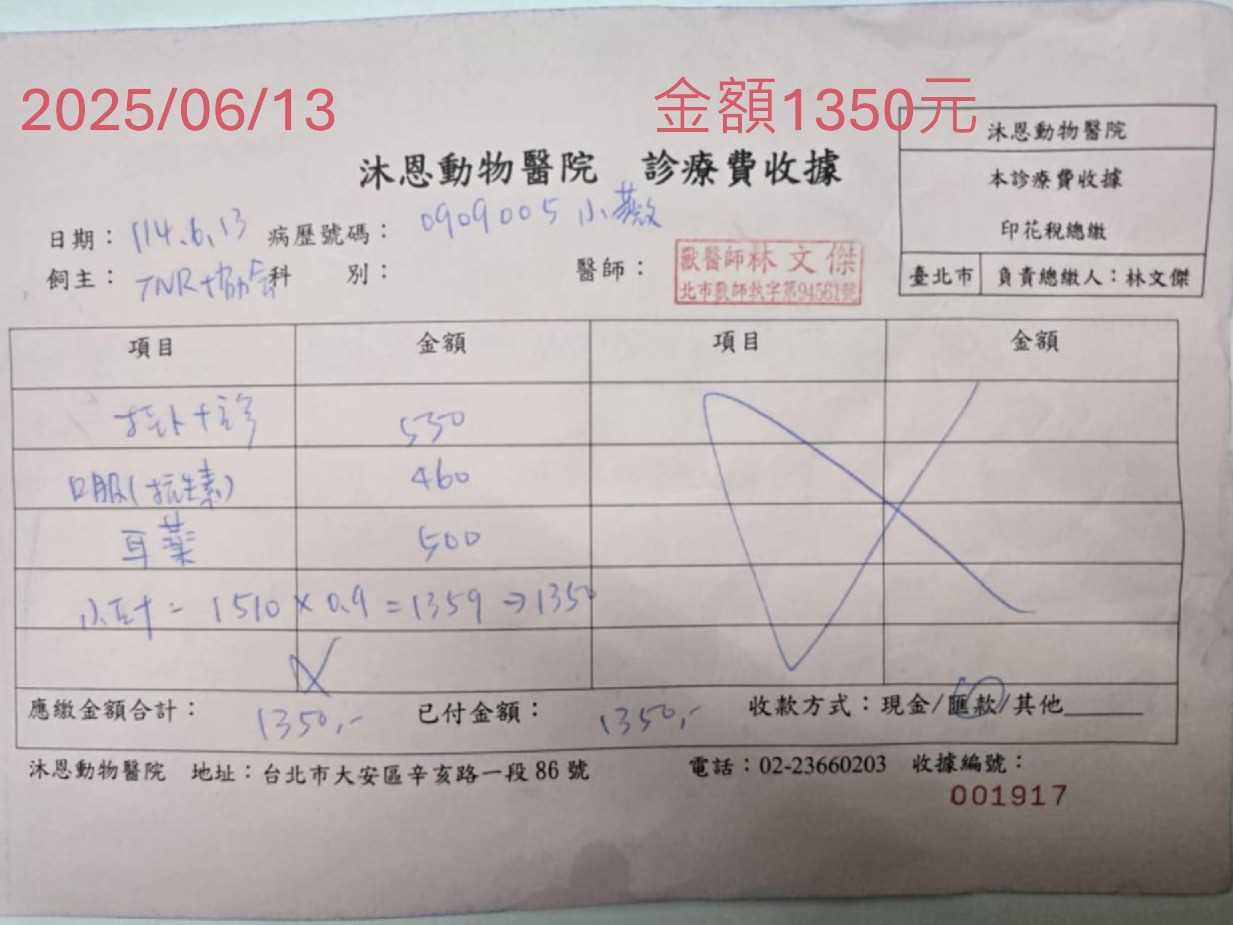 2025/06/13
金額1350元
沐恩動物醫院 診療費收據
沐恩動物醫院
本診療費收據
印花稅總繳
臺北市 負責總繳人：林文傑
日期：114.6.13 病歷號碼：0909005 小薇
飼主：TNR協會 科 別： 醫師：
獸醫師林文傑
項目 金額 項目 金額
530
口服(抗生素) 460
耳藥 500
小計= 1510 × 0.9 = 1359 → 1350
應繳金額合計：1350,- 已付金額：1350,- 收款方式：現金/匯款/其他______
沐恩動物醫院 地址：台北市大安區辛亥路一段86號 電話：02-23660203 收據編號：
001917